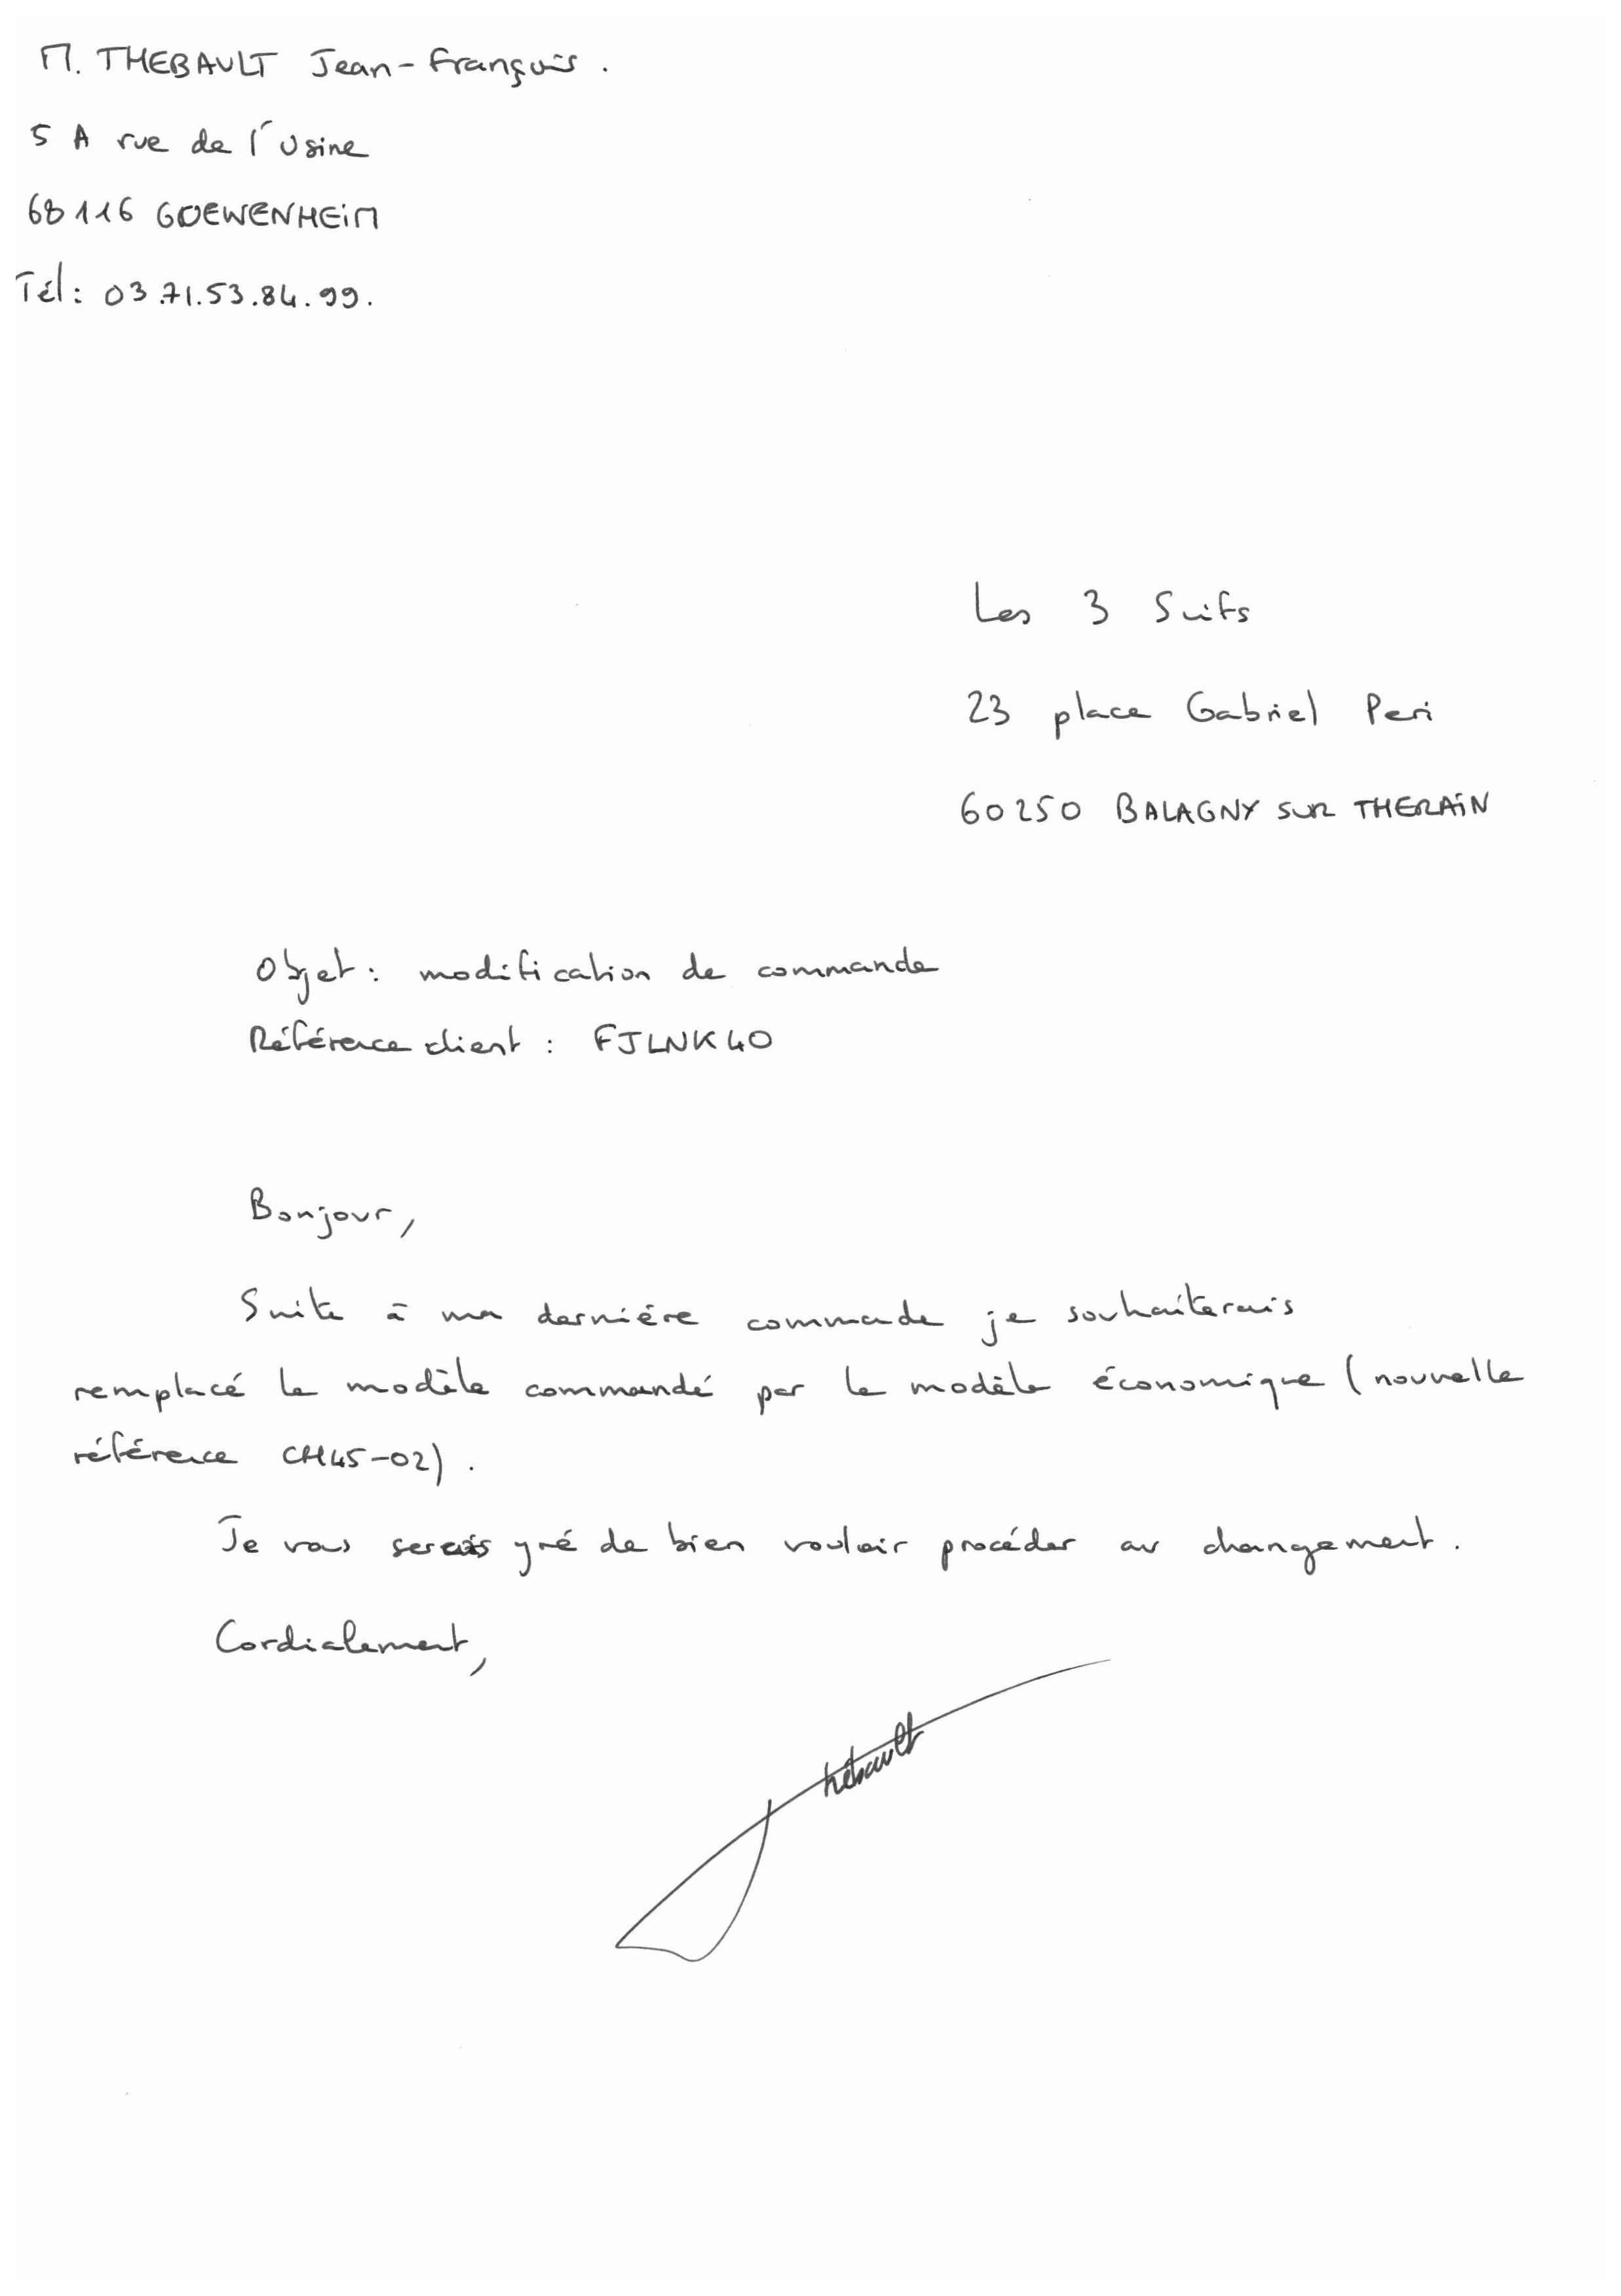 M. THEBAULT Jean-François.
5 A rue de l'Usine
68116 GOEWENHEIM
Tél: 03.71.53.84.99.
Les 3 Suifs
23 place Gabriel Peri
60250 BALAGNY SUR THERAIN
Objet: modification de commande
Référence client : FJLNK40
Bonjour,
Suite à ma dernière commande je souhaiterais
remplacé le modèle commandé par le modèle économique (nouvelle
référence CH45-02).
Je vous serais gré de bien vouloir procéder au changement.
Cordialement,
Thébault